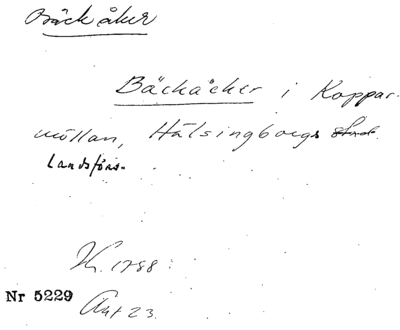 Bäckåker
Bäckåcker i Koppar-
möllan, Hälsingborgs
Landsförs.
1788:
Nr 5229
Akt 23.